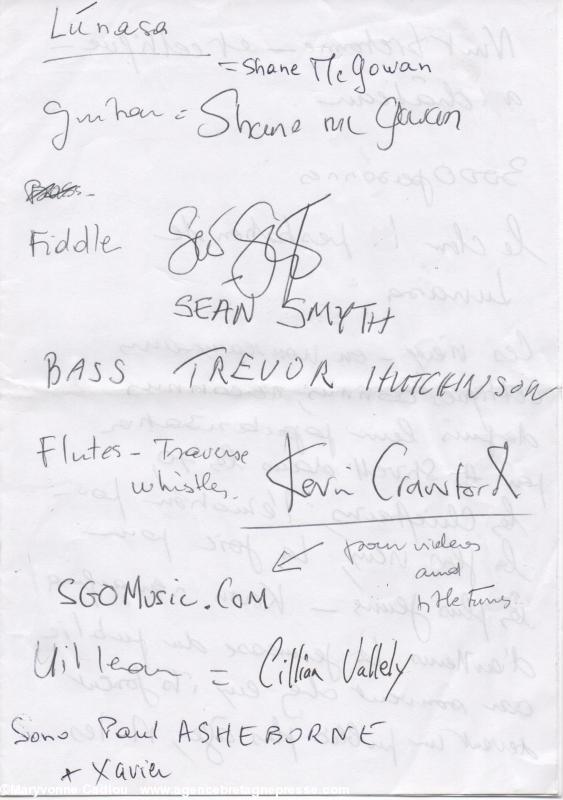 Lúnasa
= Shane McGowan
guitar = Shane mc Gowan
Bass -
Fiddle
SEAN SMYTH
BASS TREVOR HUTCHINSON
Flutes - Traverse
whistles. Kevin Crawford
pour videos
and
SGOMusic.COM
Uillean = Cillian Vallely
Sono Paul ASHEBORNE
+ Xavier
©Maryvonne Cadiou www.agencebretagnepresse.com